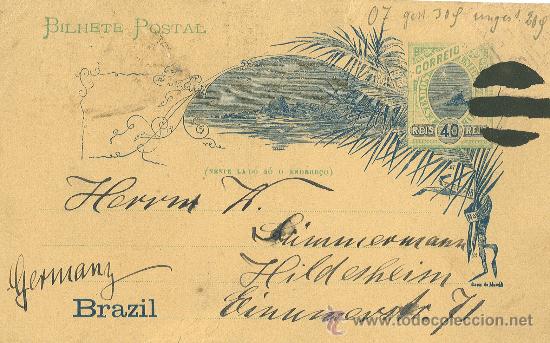 07 gest. 30₰ ungest. 20₰
BILHETE POSTAL
CORREIO
REIS 40 REIS
(NESTE LADO SÓ O ENDEREÇO)
Herrn K.
Zimmermann
Germany
Hildesheim
Brazil
Einumerstr. 71
www.todocoleccion.net